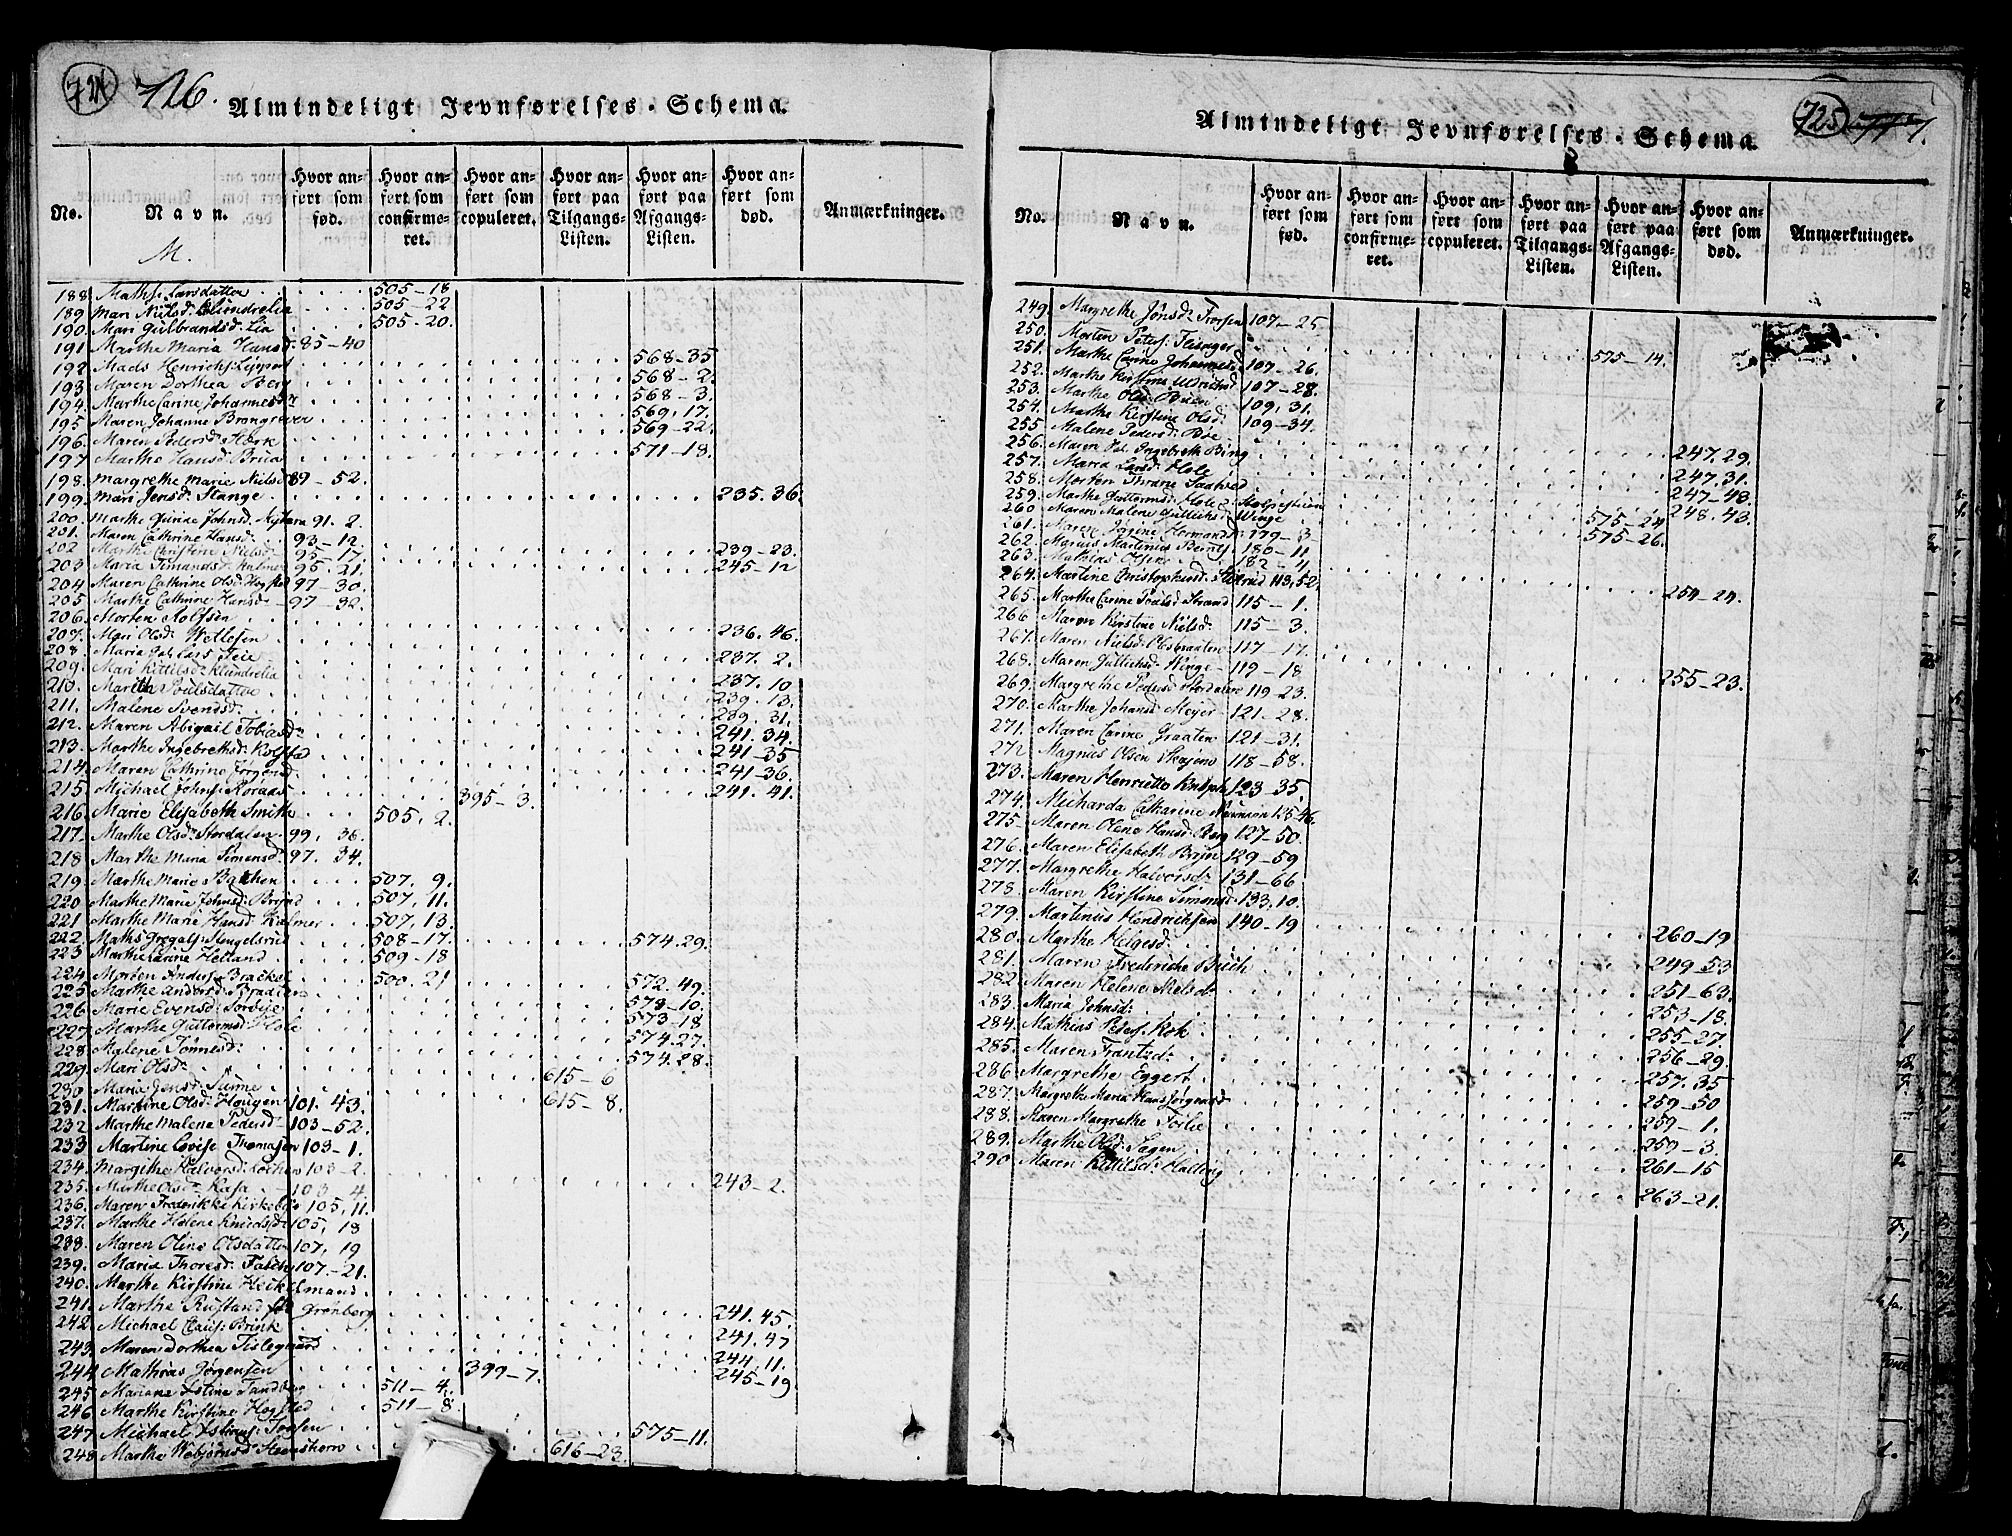 724 726.
Almindeligt Jevnførelses-Schema.
No. Navn. Hvor anført som fød. Hvor anført som confirmeret. Hvor anført som copuleret. Hvor anført paa Tilgangs-Listen. Hvor anført paa Afgangs-Listen. Hvor anført som død. Anmærkninger.
M.
188 Maths. Larsdatter 505-18
189 Mari Nielsd: Klundrelia 505-22
190. Mari Gulbrandsd: Lia 505-20.
191 Marthe Maria Hansd: 85-40
192 Mads Henrichs: Lippert 568-35
193 Maren Dorthea Berg 568-2
194. Marthe Carine Johannesd: 568-3
195 Maren Johanne 569, 17.
196. Maren Pedersd: Hork 569-22.
197 Marthe Hansd: Brua 571-18.
198. Margrethe Marie Nielsd 89-52.
199. Mari Jensd: Stange 235. 36.
200. Marthe Gurine Johnsd. 91. 2.
201. Maren Cathrine Hansd. 93-12.
202 Marthe Christine Nielsd: 95-17. 239-23.
203 Maria Simonsd: Kalmer 95-21. 245-12
204 Maren Cathrine Olsd: Hogsted 97-30.
205 Marthe Cathrine Hansd. 97-32.
206. Morten Rolfsen 236. 46.
207. Mari Olsd: Wetlesen 237. 2.
208. Maria Lars Teie 237. 10
209. Mari Kittilsd: Klundrelia 239. 13.
210. Marith Poulsdatter 239. 31.
211. Malene Svendsd. 241. 34.
212. Maren Abigail Tobiasd: 241-35
213. Marthe Ingebrethsd: Kolstad 241-36.
214. Maren Cathrine Jörgensd 241. 41.
215 Michael Johns: Roraas 395-3.
216. Marie Elisabeth Smith 505. 2.
217. Marthe Olsd: Stordalen 99, 36.
218 Marthe Maria Simensd: 97. 34.
219. Marthe Marie Bakken 507. 9.
220 Marthe Marie Johnsd: 507, 11.
221 Marthe Marie Hansd: Kalmer 507, 13.
222. Maths Gregals: Stengelsrud 508-17. 574. 29.
223 Marthe Carine Helland 509-18
224. Morten Anders: Brackel 500. 21 572. 49.
225 Marthe Andersd: Braaten 573-10.
226 Marie Evensd: Sorbye 573-18
227 Marthe Guttormsd: Hole 574. 27.
228 Malene Tönnesd: 574. 28.
229. Mari Olsd: 615-6
230 Maria Jensd: Sunne 615-8.
231. Martine Olsd: Hougen 101. 43.
232 Marthe Malene Pedersd: 103-52.
233 Martine Lovise Thomasen 103-1.
234. Margithe Halvorsd: Lochen 103-2.
235. Marthe Olsd: Rasa 103 4. 243-2.
236. Maren Frederikke Kirkebye 105, 11.
237. Marthe Helene Knudsd: 105, 18
238. Maren Oline Olsdatter 107, 19
239. Maria Thoresd: 107-21.
240. Marthe Kirstine Heckelmand 241. 45.
241. Marthe Rustand Grönberg 241. 47
242. Michael Claus: Brink 244. 11.
243. Maren Dorthea Tislegaard 245-19.
244. Mathias Jörgensen 399-7.
245 Mariane Istine Tandberg 511-4.
246 Marthe Kirstine Hogsted 511-8.
247 Michael Torsen 575-11.
248. Marthe Webjörnsd: Steenshorn 616-23.
725 777.
Almindeligt Jevnførelses-Schema.
No. Navn. Hvor anført som fød. Hvor anført som confirmeret. Hvor anført som copuleret. Hvor anført paa Tilgangs-Listen. Hvor anført paa Afgangs-Listen. Hvor anført som død. Anmærkninger.
249. Margrethe Jönsd: 107-25
250. Morten Peters: Flesager 575-14.
251. Marthe Carine Johannesd 107-26.
252. Marthe Kirstine Ulrichsd 107-28.
253. Marthe Olsd: Bruen 109, 31.
254. Marthe Kirstine Olsd: 109-34.
255 Malene Pedersd: Böe 247. 29.
256. Maren Ingebreth Bing 247. 31.
257. Maria Larsd: Hole 247-43.
258. Morten Thrane Saatved 248. 43.
259. Marthe Guttormsd: Hole 575-24
260 Maren Malene Gullichsd: Winge 575-26.
261. Maren Jörgine Hermansd: 179-3
262. Marius Martinius Berntz 180-11.
263. Mathias Olsen 182-4 254-24.
264. Martine Christophersd: 113, 52.
265. Marthe Carine Poulsd: Strand 115-1.
266 Maren Kirstine Nielsd: 115-3.
267. Maren Nielsd: Olsbraaten 117-17. 255-23.
268. Maren Gullichsd: Winge 119-18
269. Margrethe Pedersd Stordalen 119-23.
270. Marthe Johansd: Meyer 121-28.
271. Maren Carine Graaten 121-31.
272 Magnus Olsen Skojen 118-58.
273. Maren Henriette 123-35.
274. Micharda Catharine 125-46.
275- Maren Olene Hansd: Berg 127-50.
276. Maren Elisabeth 129-59
277. Margrethe Halvorsd: 131-66
278. Maren Kirstine Simonsd: 133, 10.
279. Martinus Hendrichsen 140-19
280. Marthe Helgesd: 260-19
281. Maren Frederiche Buch 249-53
282 Maren Helene Nielsd: 251-63.
283. Maria Johnsd: 253-18.
284. Mathias Peters: Kok 255-27.
285. Maren Frantzd: 256-29.
286. Margrethe Eggert. 257. 35
287. Margrethe Maria Hans Jörgensd 259-50
288. Maren Margrethe Foslie 259-1.
289. Marthe Olsd: Sagen 259-3.
290- Maren Kittilsd: Halling 261-15
263-21.